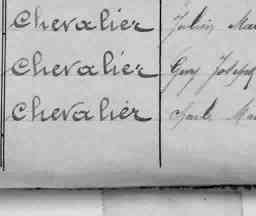 Chevalier Julien
Chevalier Guy Joseph
Chevalier Charles